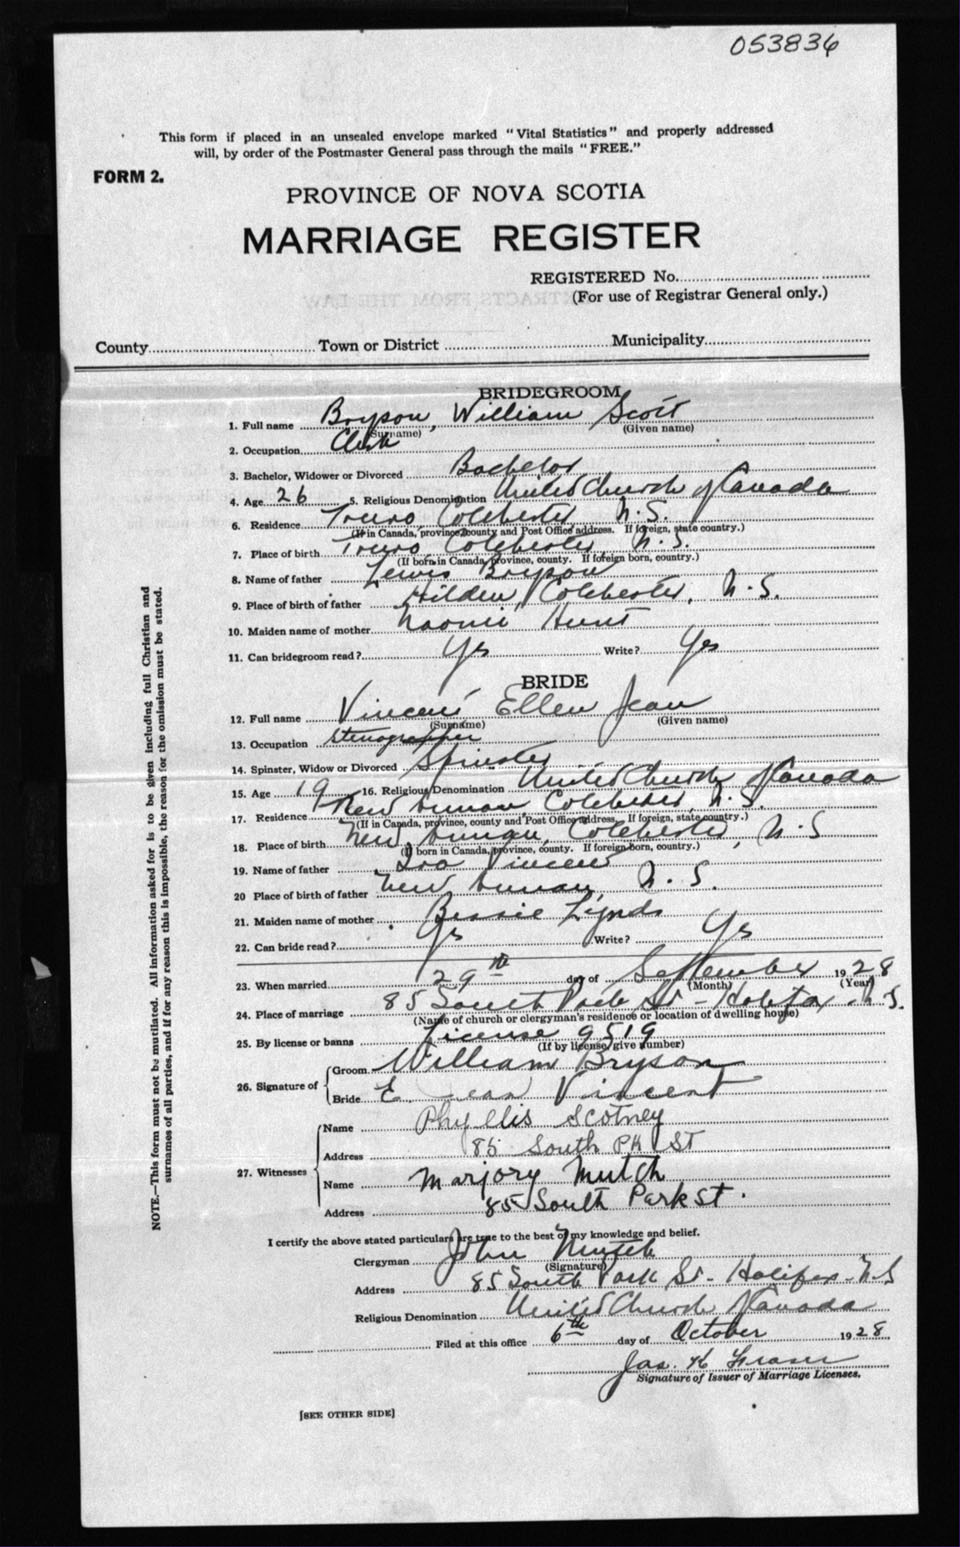 053836
This form if placed in an unsealed envelope marked "Vital Statistics" and properly addressed
will, by order of the Postmaster General pass through the mails "FREE."
FORM 2.
PROVINCE OF NOVA SCOTIA
MARRIAGE REGISTER
REGISTERED No.
(For use of Registrar General only.)
County Town or District Municipality
BRIDEGROOM
1. Full name Bryson, William Scott
(Surname) (Given name)
2. Occupation Clerk
3. Bachelor, Widower or Divorced Bachelor
4. Age 26 5. Religious Denomination United Church of Canada
6. Residence Truro Colchester N.S.
(If in Canada, province, county and Post Office address. If foreign, state country.)
7. Place of birth Truro Colchester N.S.
(If born in Canada, province, county. If foreign born, country.)
8. Name of father Lewis Bryson
9. Place of birth of father Hilden, Colchester, N.S.
10. Maiden name of mother Naomi Hunt
11. Can bridegroom read? Yes Write? Yes
BRIDE
12. Full name Vincent Ellen Jean
(Surname) (Given name)
13. Occupation Stenographer
14. Spinster, Widow or Divorced Spinster
15. Age 19 16. Religious Denomination United Church of Canada
17. Residence New Annan Colchester, N.S.
(If in Canada, province, county and Post Office address. If foreign, state country.)
18. Place of birth New Annan, Colchester, N.S
(If born in Canada, province, county. If foreign born, country.)
19. Name of father Ira Vincent
20 Place of birth of father New Annan, N.S.
21. Maiden name of mother Bessie Lynds
22. Can bride read? Yes Write? Yes
23. When married 29th day of September 1928
(Month) (Year)
24. Place of marriage 85 South Park St - Halifax - N.S.
(Name of church or clergyman's residence or location of dwelling house)
25. By license or banns License 9519
(If by license, give number)
26. Signature of Groom William Bryson
Bride E. Jean Vincent
27. Witnesses
Name Phyllis Scotney
Address 85 South Pk St
Name Marjory Mutch
Address 85 South Park St.
I certify the above stated particulars are true to the best of my knowledge and belief.
Clergyman John Mutch
(Signature)
Address 85 South Park St - Halifax - N.S
Religious Denomination United Church of Canada
Filed at this office 6th day of October 1928
Jas. H Fraser
Signature of Issuer of Marriage Licenses.
[SEE OTHER SIDE]
NOTE.—This form must not be mutilated. All information asked for is to be given including full Christian and
surnames of all parties, and if for any reason this is impossible, the reason for the omission must be stated.